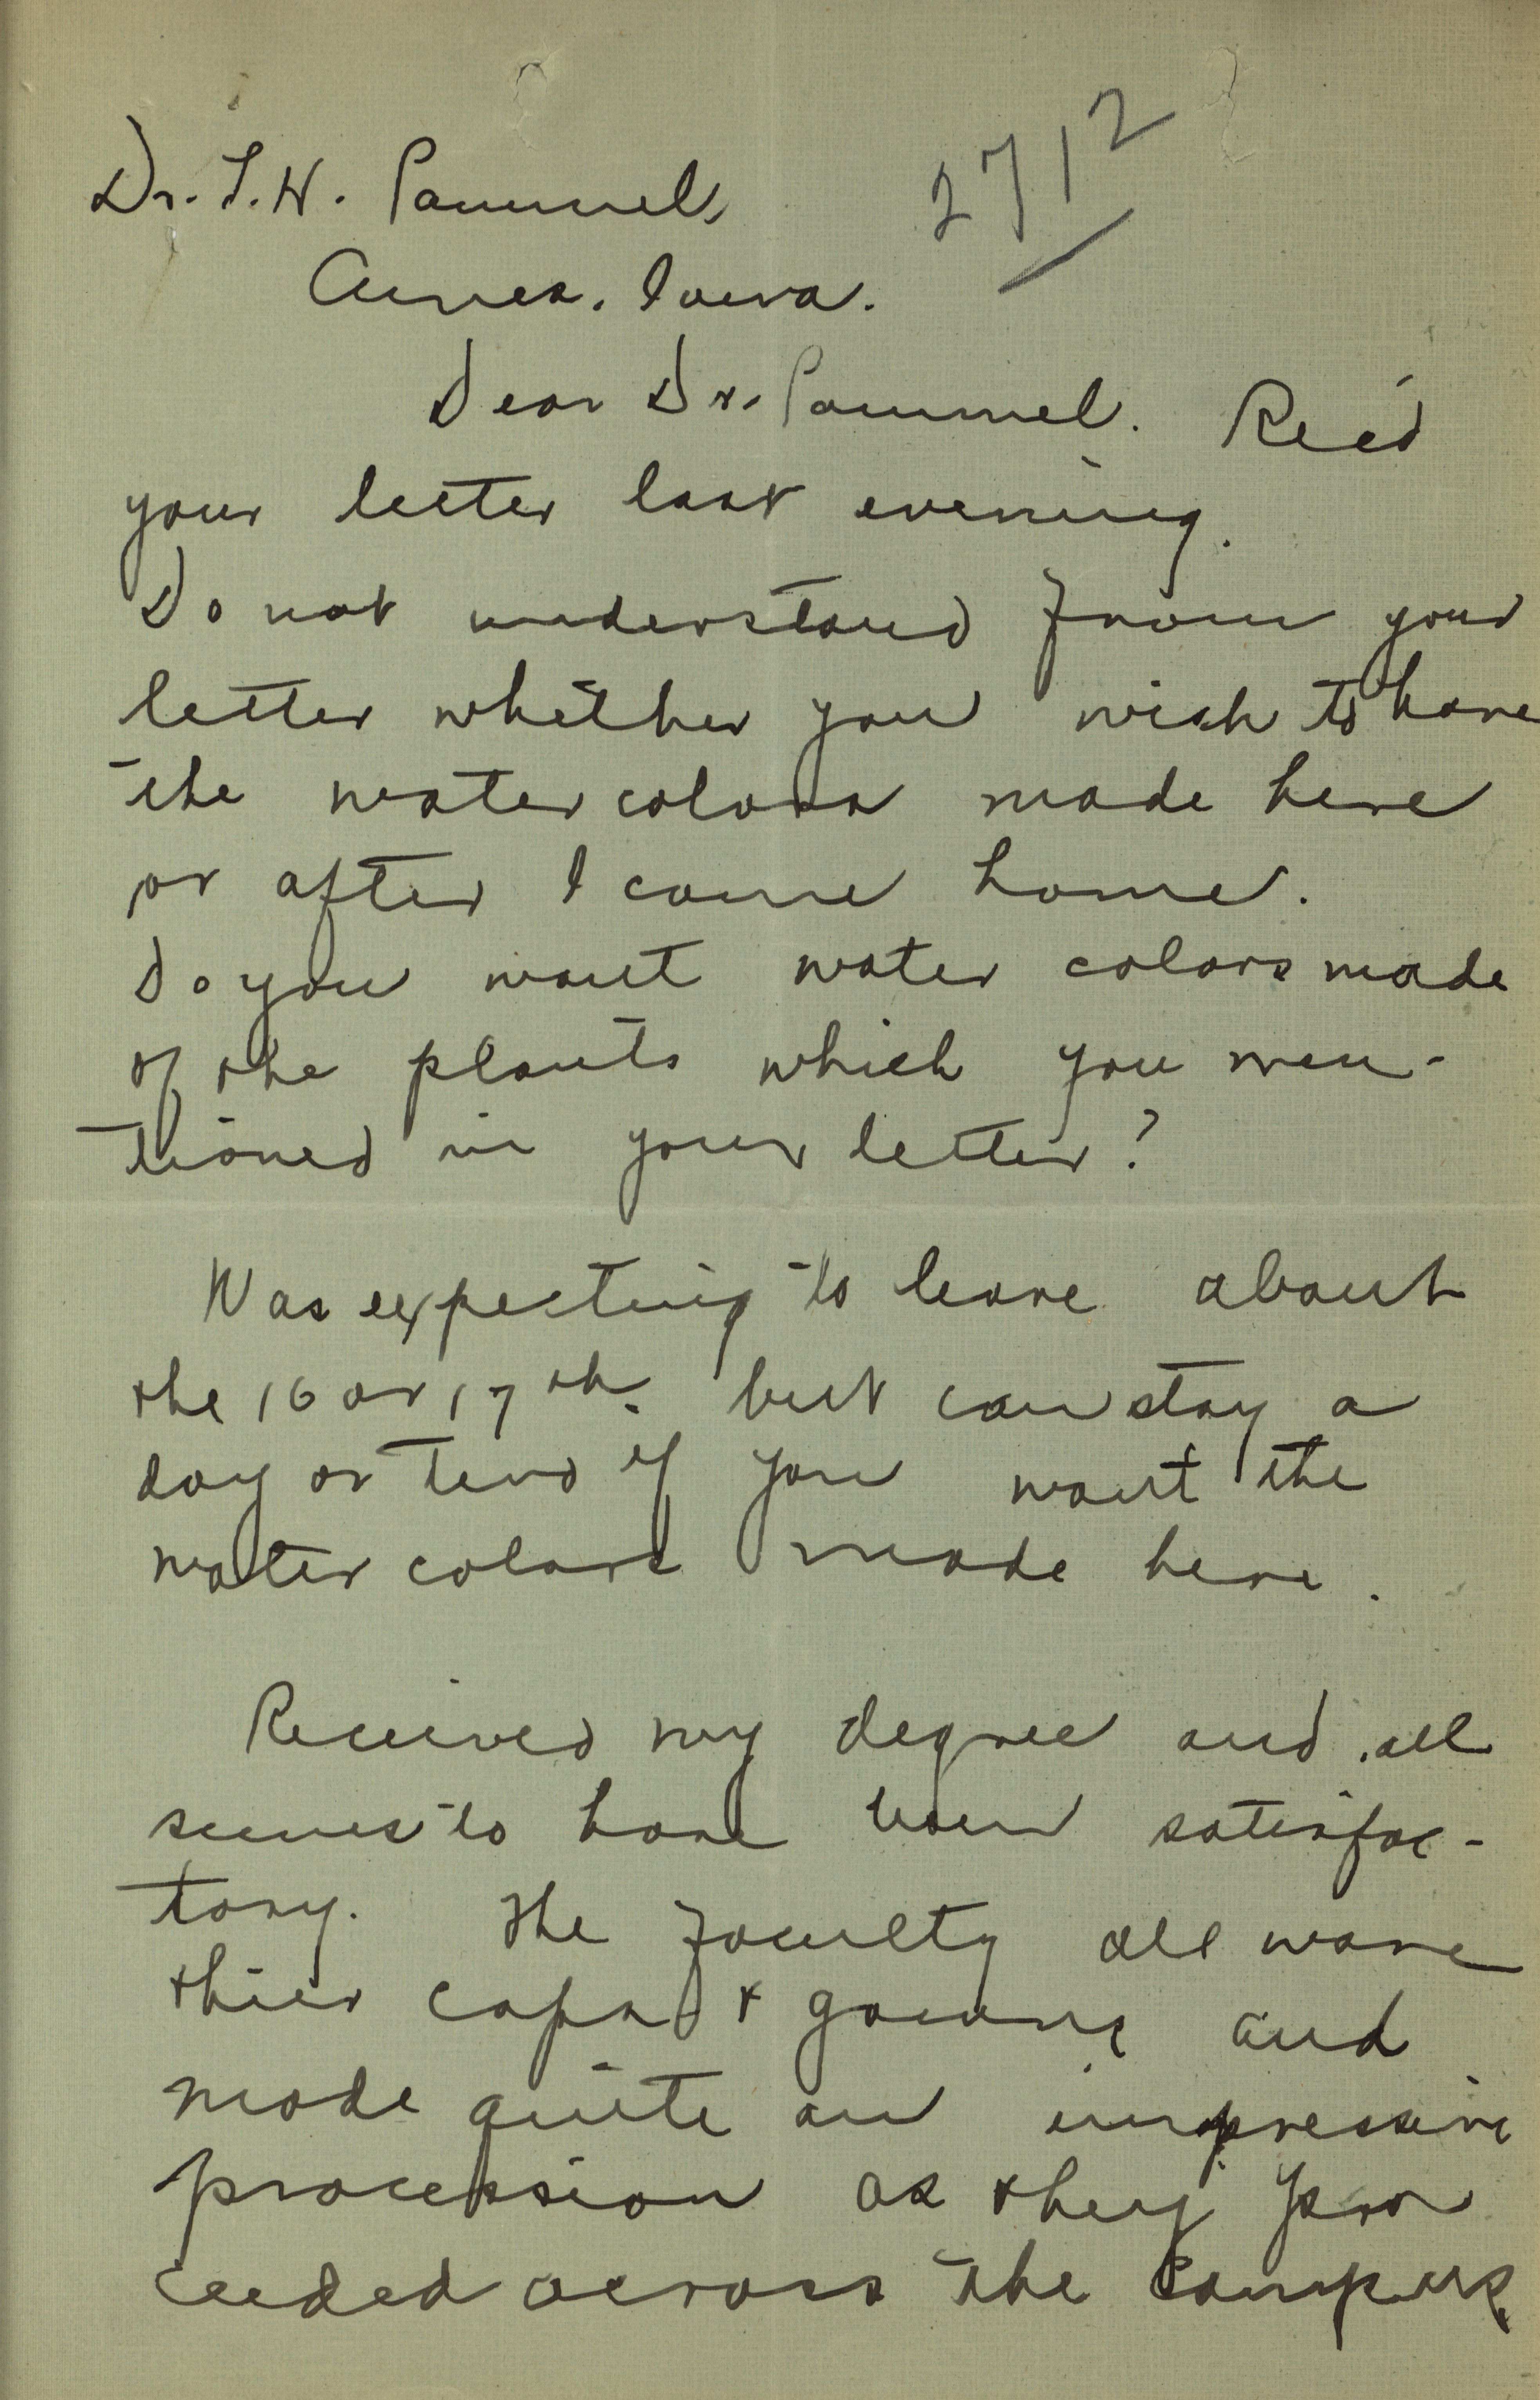 2712
Dr. L.H. Pammel,
Ames. Iowa.
Dear Dr. Pammel. Rec'd
your letter last evening.
Do not understand from your
letter whether you wish to have
the water colors made here
or after I come home.
Do you want water colors made
of the plants which you men-
tioned in your letter?
Was expecting to leave about
the 16 or 17th. but can stay a
day or two if you want the
water colors made here.
Received my degree and all
seems to have been satisfac-
tory. The faculty all wore
thier caps & gowns and
made quite an impressive
procession as they pro
ceeded across the campus,